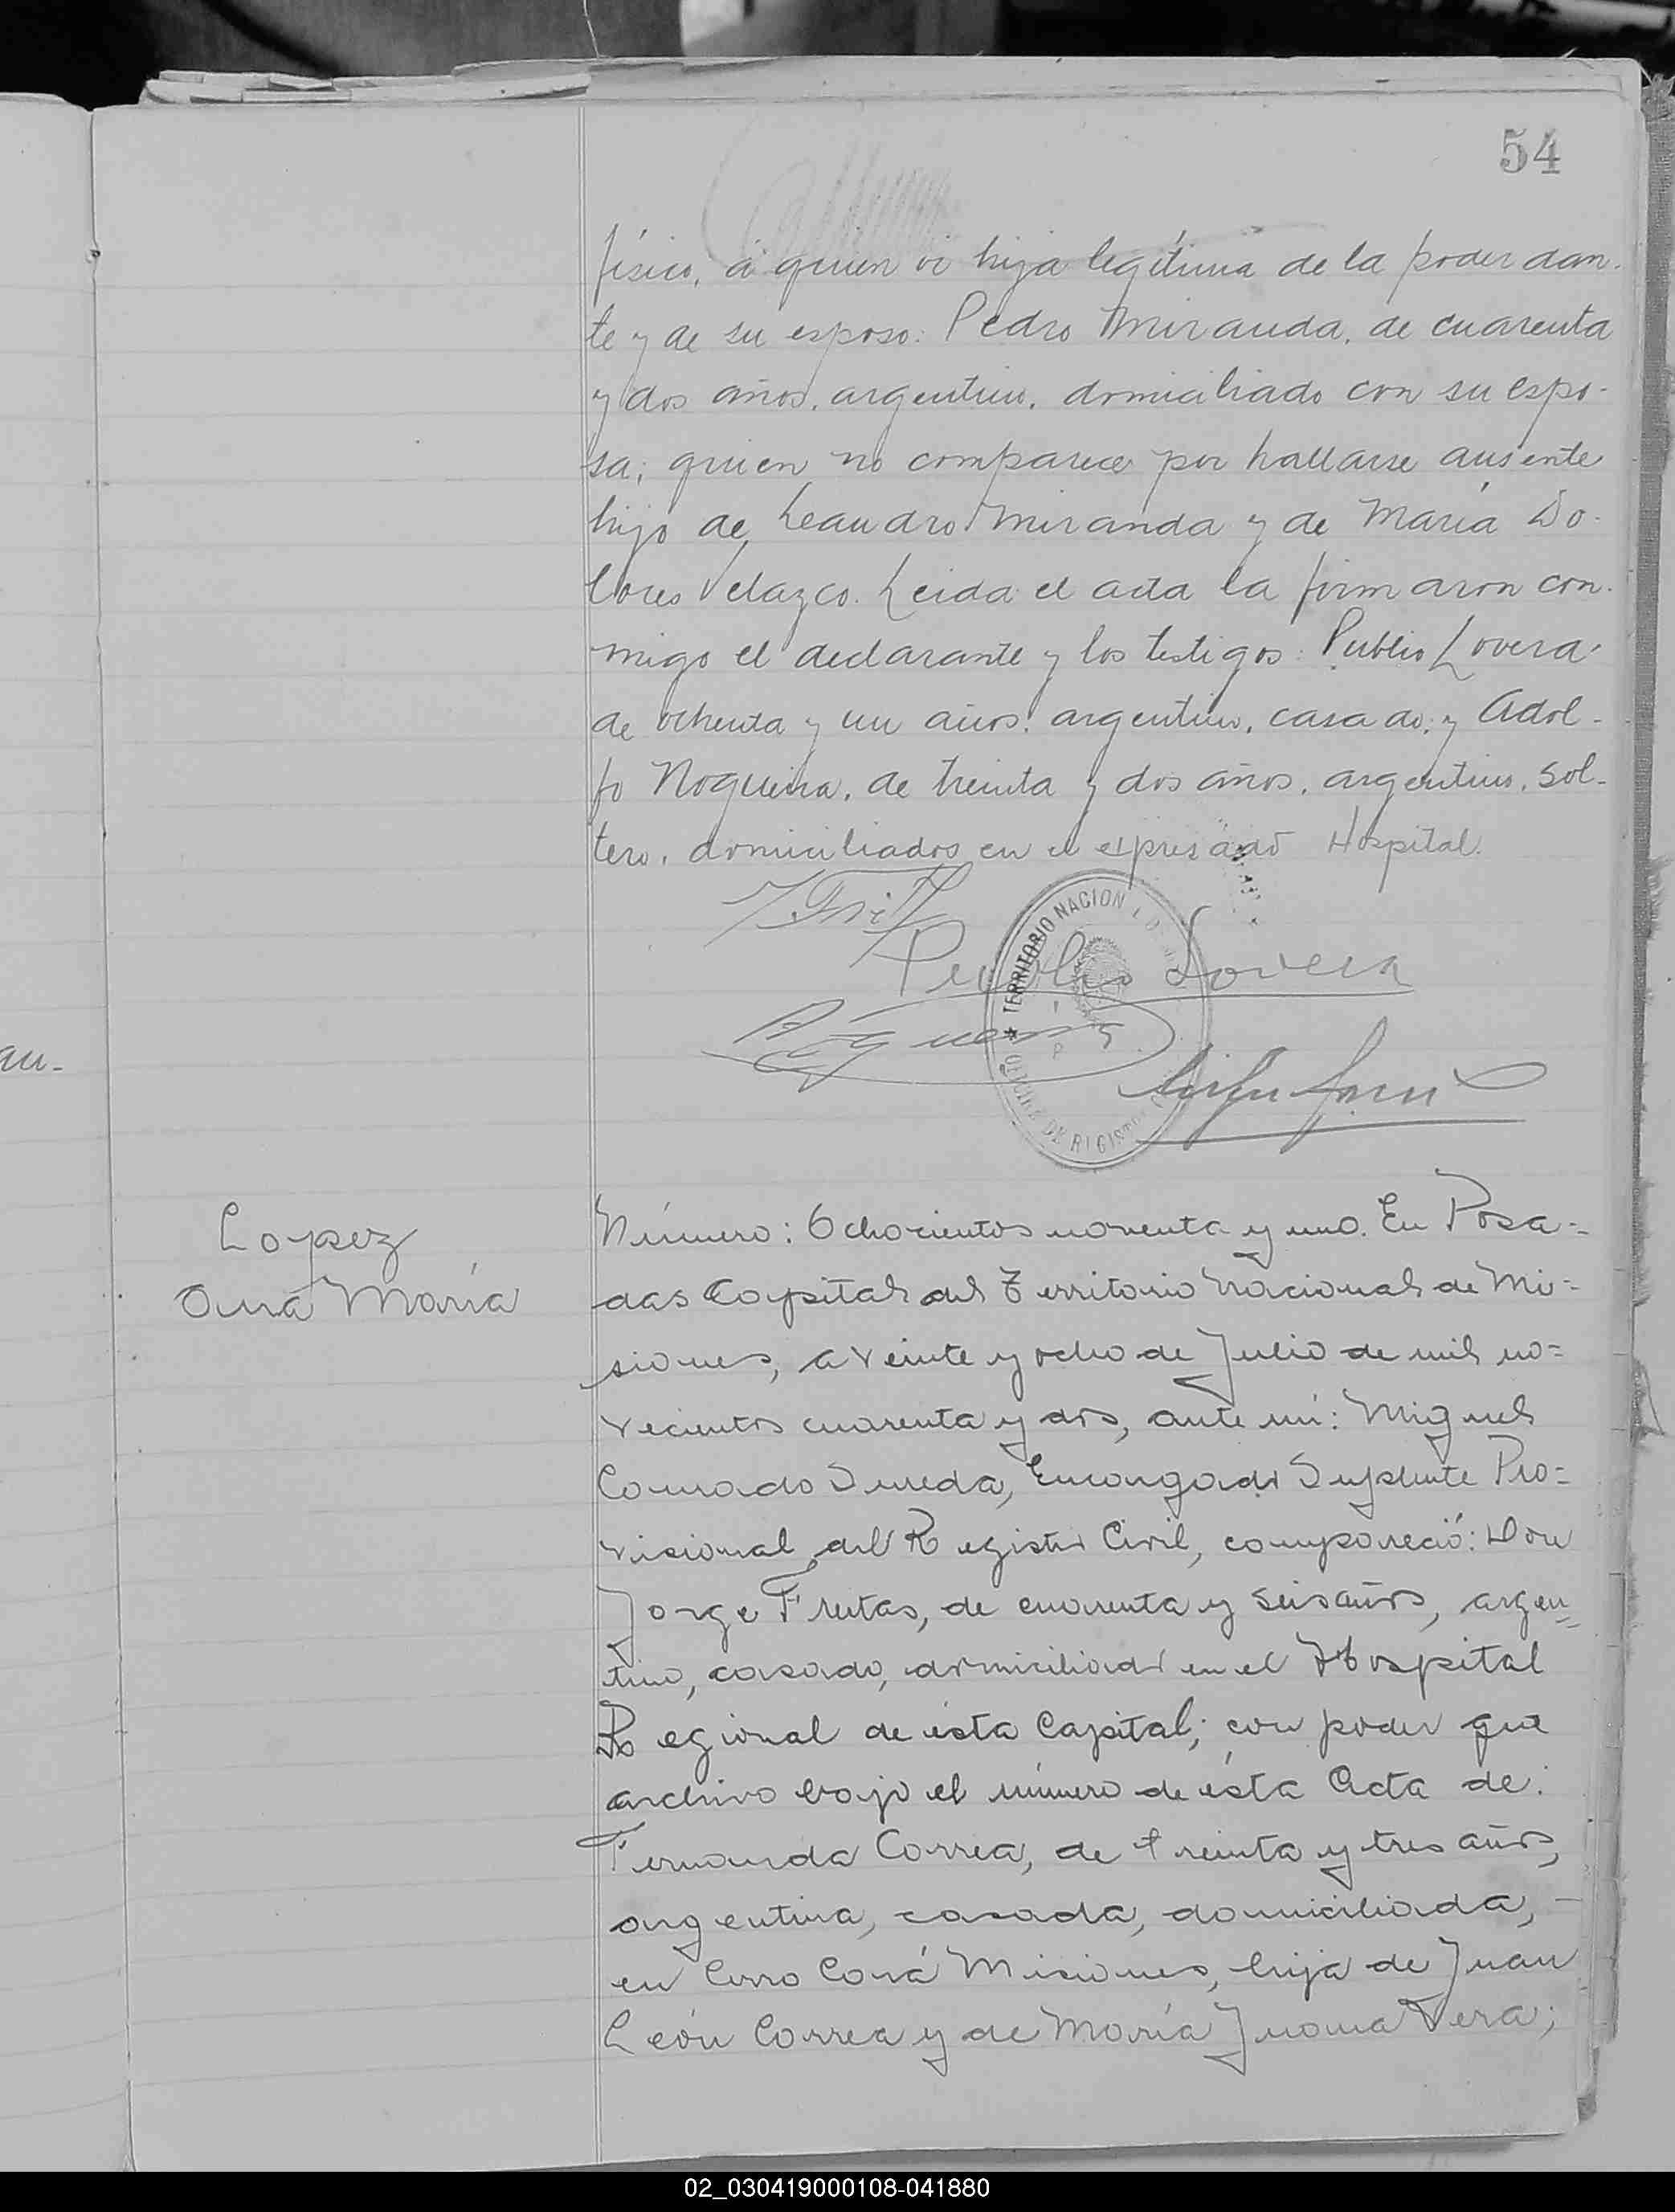 54
físico, á quien ví hija legítima de la poder dan-
te y de su esposo: Pedro Miranda, de cuarenta
y dos años, argentino, domiciliado con su espo-
sa; quien no comparece por hallarse ausente
hijo de Leandro Miranda y de María Do-
lores Velazco. Leida el acta la firmaron con-
migo el declarante y los testigos: Publio Lovera
de ochenta y un años, argentino, casado; y Adol-
fo Nogueira, de treinta y dos años, argentino, sol-
tero, domiciliados en el expresado Hospital.
Publio Lovera
TERRITORIO NACION
DE
au-
Lopez
Ana María
Número: Ochocientos noventa y uno. En Posa=
das Capital del Territorio Nacional de Mi=
siones, a veinte y ocho de Julio de mil no=
vecientos cuarenta y dos, ante mí: Miguel
Conrado Sureda, Encargado Suplente Pro=
visional del Registro Civil, compareció: Don
Jorge Frutas, de cuarenta y seis años, argen=
tino, casado, domiciliado en el Hospital
Regional de ésta Capital; con poder que
archivo bajo el número de ésta Acta de:
Fernanda Correa, de treinta y tres años,
argentina, casada, domiciliada, -
en Cerro Corá Misiones, hija de Juan
León Correa y de María Juana Vera;
02_030419000108-041880